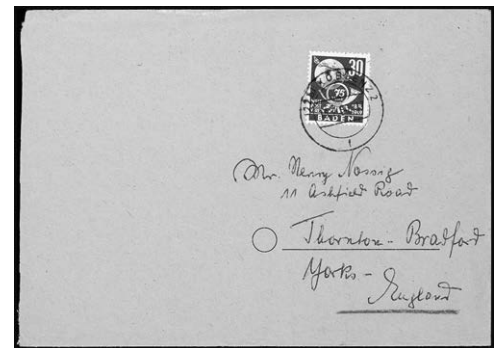 30
75
BADEN
Mr. Henry Nossig
11 Ashfield Road
Thornton-Bradford
Yorks-
England